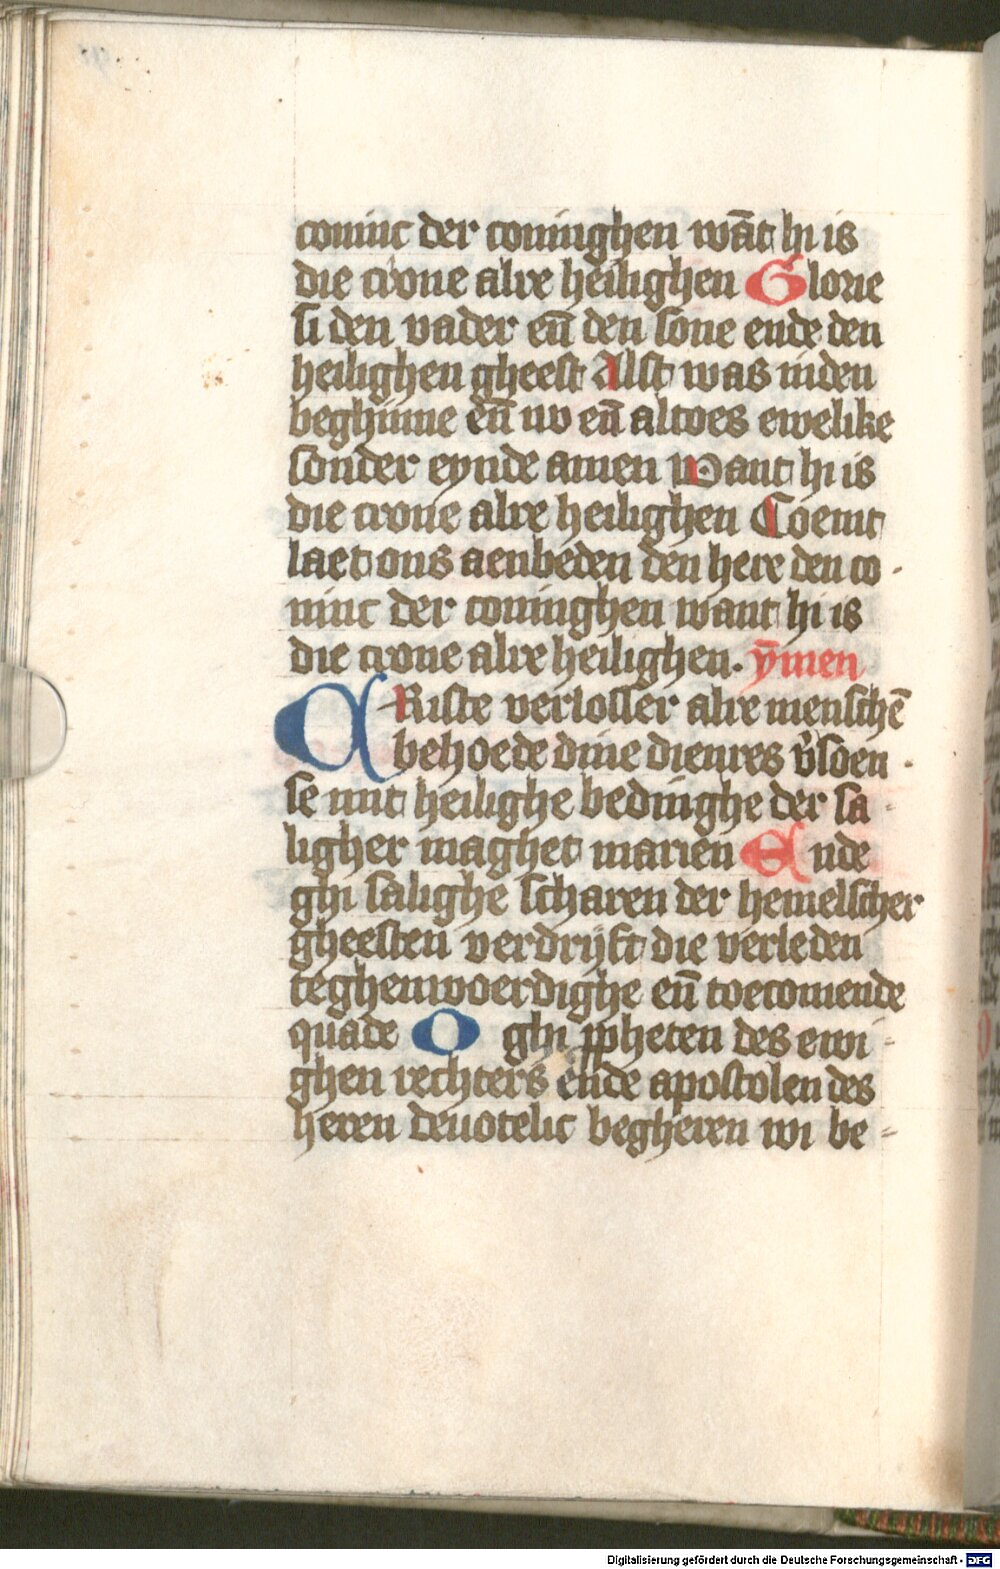 coninc der coninghen wāt hi is
die crone alre heilighen Glorie
si den vader eñ den sone ende den
heilighen gheest Alst was inden
beghinne eñ nv eñ altoes ewelike
sonder eynde amen Want hi is
die crone alre heilighen Coemt
laet ons aenbeden den here den co
ninc der coninghen want hi is
die crone alre heilighen. ȳmen
CRiste verlosser alre menschē
behoede dine dienres v̓soen
se mit heilighe bedinghe der sa
ligher maghet marien Ende
ghi salighe scharen der hemelscher
gheesten verdrijft die verleden
teghenwoerdighe eñ toecomende
quade O ghi ꝓpheten des ewi
ghen rechters ende apostolen des
heren deuotelic begheren wi be
Digitalisierung gefördert durch die Deutsche Forschungsgemeinschaft - DFG